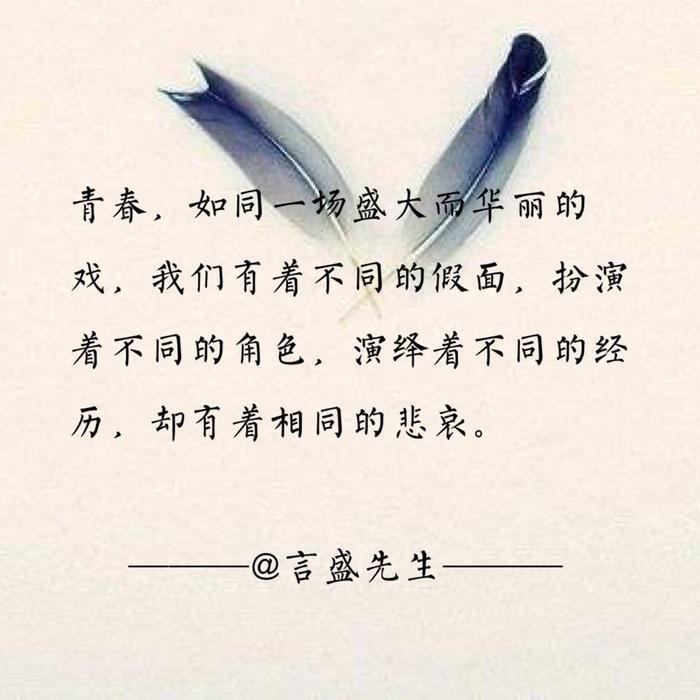 青春，如同一场盛大而华丽的
戏，我们有着不同的假面，扮演
着不同的角色，演绎着不同的经
历，却有着相同的悲哀。
———@言盛先生———